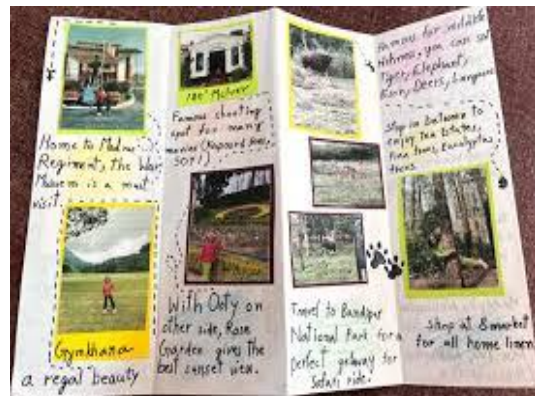 Home to Madras
Regiment, the War
Museum is a must
visit.
Gymkhana
a regal beauty
180° McIver
Famous shooting
spot for many
movies (Kapoor and Sons,
SOTY)
With Ooty on
other side, Rose
Garden gives the
best sunset view.
Travel to Bandipur
National Park for a
perfect getaway for
Safari ride.
Famous for wildlife
richness, you can see
Tiger, Elephant,
Deers, Langurs
Stop in between to
enjoy Tea Estates,
Pine trees, Eucalyptus
trees.
shop at market
for all home linen